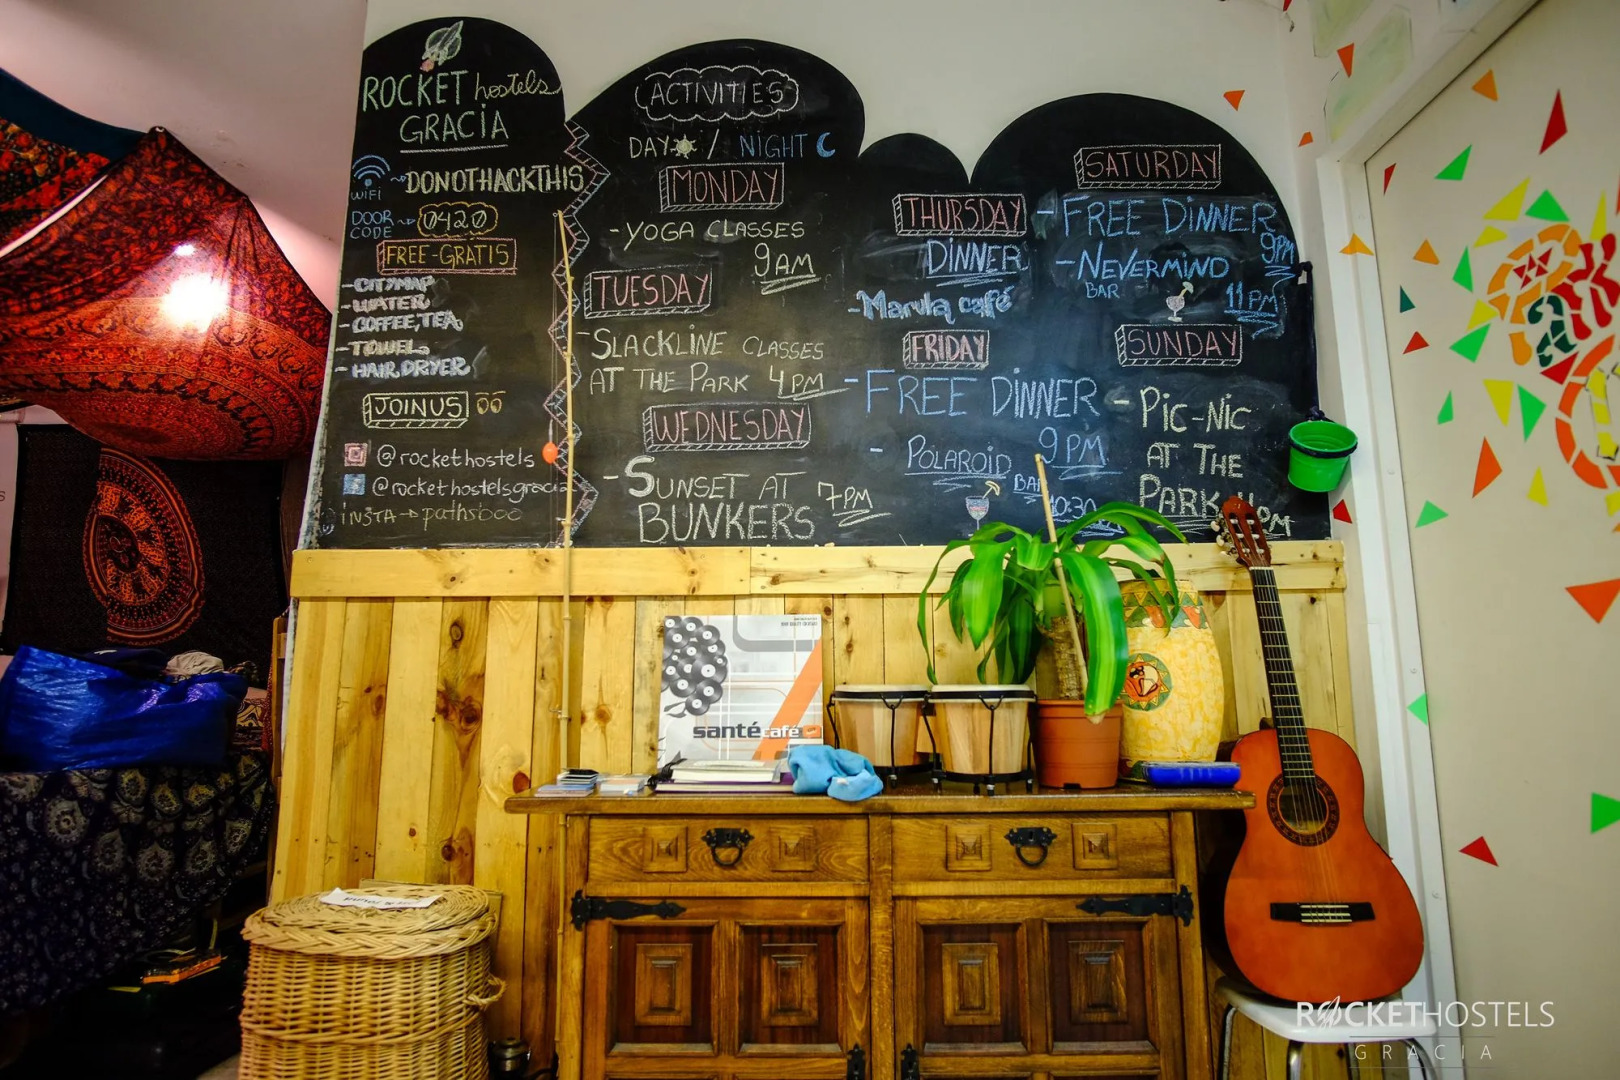 ROCKET hostels
GRACIA
WIFI DONOTHACKTHIS
DOOR CODE 0420
FREE-GRATIS
-CITYMAP
-WATER
-COFFEE, TEA
-TOWEL
-HAIR DRYER
JOIN US
@rockethostels
@rockethostelsgracia
INSTA→
ACTIVITIES
DAY / NIGHT
MONDAY
-YOGA CLASSES
9AM
TUESDAY
-SLACKLINE CLASSES
AT THE PARK 4PM
WEDNESDAY
-SUNSET AT
BUNKERS 7PM
THURSDAY
DINNER
-Marula café
FRIDAY
-FREE DINNER
9PM
-POLAROID
BAR
10:30
SATURDAY
-FREE DINNER
9PM
-NEVERMIND
BAR
11PM
SUNDAY
-PIC-NIC
AT THE
PARK
PM
santé café
ROCKETHOSTELS
GRACIA